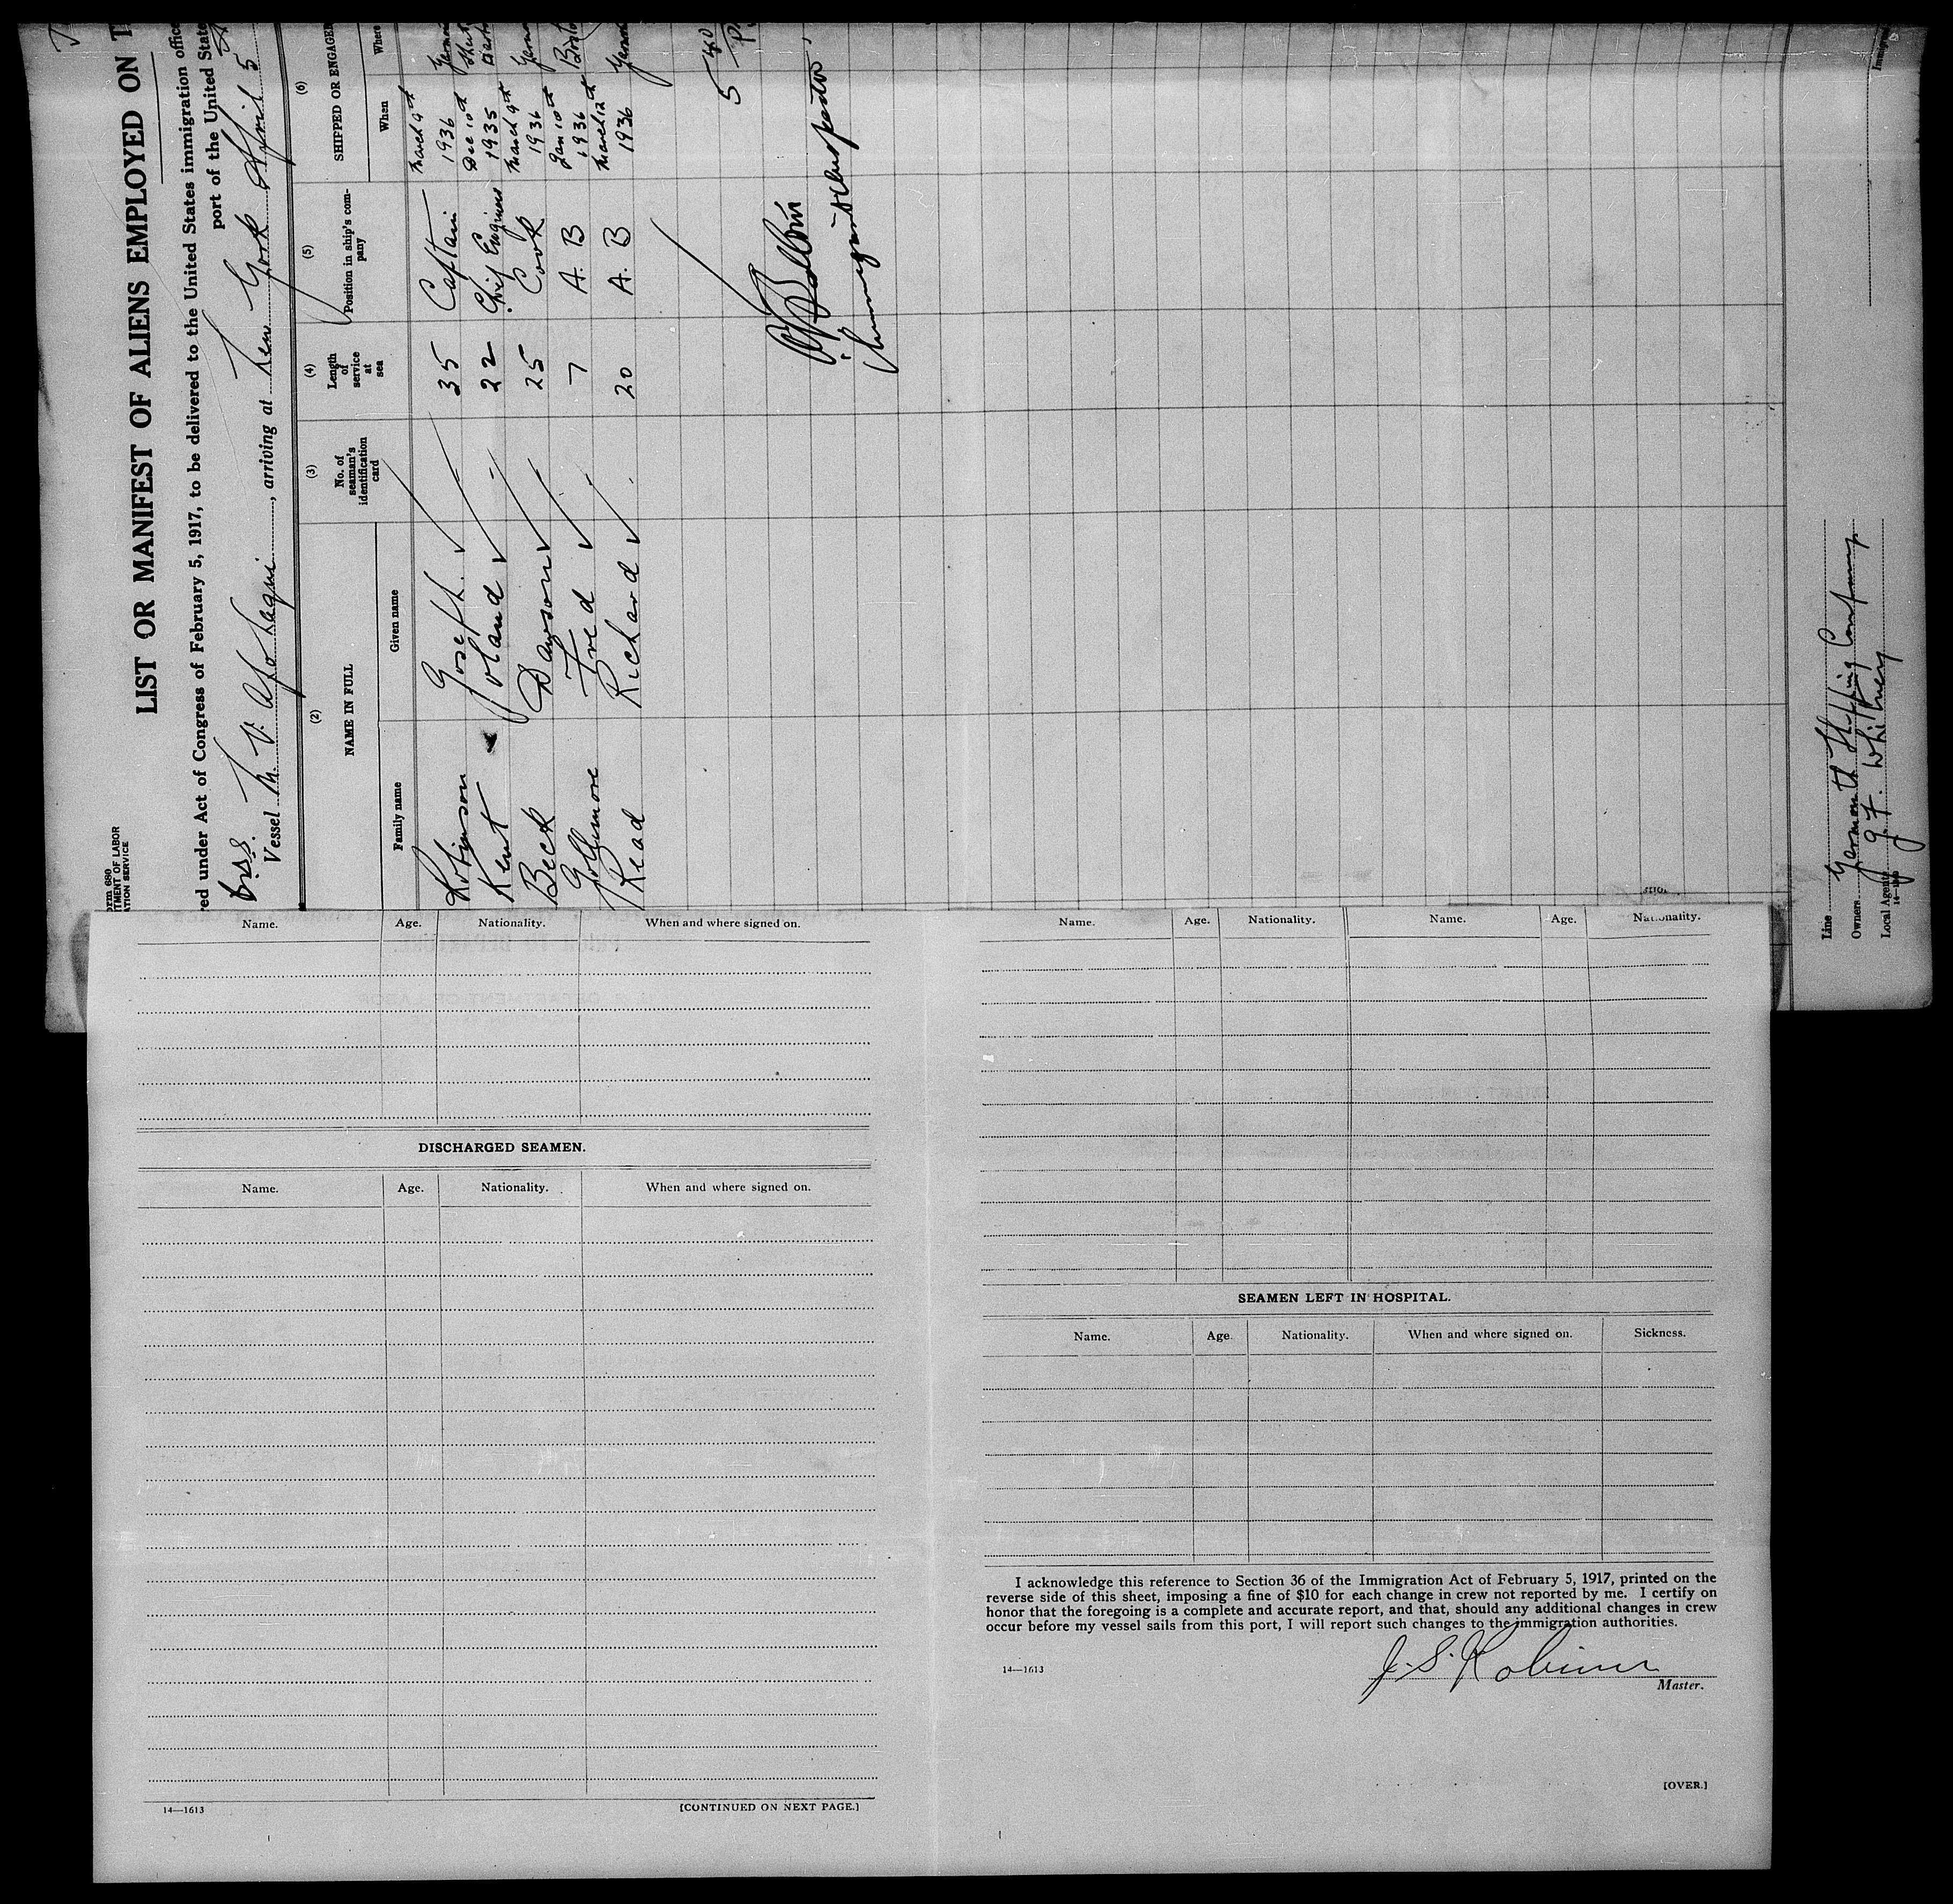 LIST OR MANIFEST OF ALIENS EMPLOYED ON T
orm 680
TMENT OF LABOR
ATION SERVICE
red under Act of Congress of February 5, 1917, to be delivered to the United States immigration offic
port of the United State
Vessel M. V. , arriving at New York April 5
(2) (3) (4) (5) (6)
NAME IN FULL No. of seaman's identification card Length of service at sea Position in ship's company SHIPPED OR ENGAGED
Family name Given name When Where
Robinson Joseph 35 Captain March 9th 1936 Yarmo
Kent Roland 22 Chief Engineer Dec 10th 1935
Beck Dawson 25 Cook March 9th 1936 Yarmo
Gollimore Fred 7 A. B Jan 10th 1936 Bosto
Read Richard 20 A. B March 12th 1936 Yarmo
5
Immigrant Inspector
Line
Owners Yarmouth Shipping Company
Local Agents J. F. Whitney
14—1
Name. Age. Nationality. When and where signed on.
DISCHARGED SEAMEN.
Name. Age. Nationality. When and where signed on.
14—1613 [CONTINUED ON NEXT PAGE.]
Name. Age. Nationality. Name. Age. Nationality.
SEAMEN LEFT IN HOSPITAL.
Name. Age. Nationality. When and where signed on. Sickness.
I acknowledge this reference to Section 36 of the Immigration Act of February 5, 1917, printed on the
reverse side of this sheet, imposing a fine of $10 for each change in crew not reported by me. I certify on
honor that the foregoing is a complete and accurate report, and that, should any additional changes in crew
occur before my vessel sails from this port, I will report such changes to the immigration authorities.
J. S. Robinson
14—1613
Master.
[OVER.]